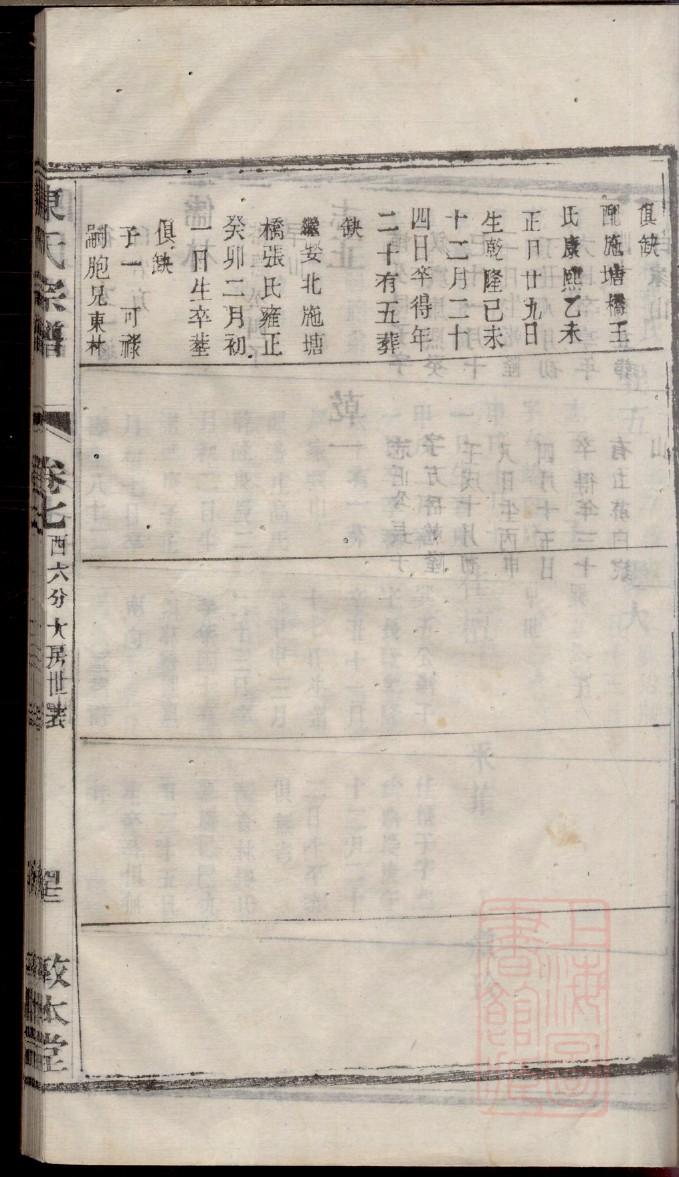 俱缺
配施塘橋王
氏康熙乙未
正月廿九日
生乾隆己未
十二月二十
四日卒得年
二十有五葬
缺
繼安北施塘
橋張氏雍正
癸卯二月初
一日生卒塟
俱缺
子一 可祿
嗣胞兄東林
陳氏宗譜
卷七
西六分大房世表
敦本堂
上海圖書館藏